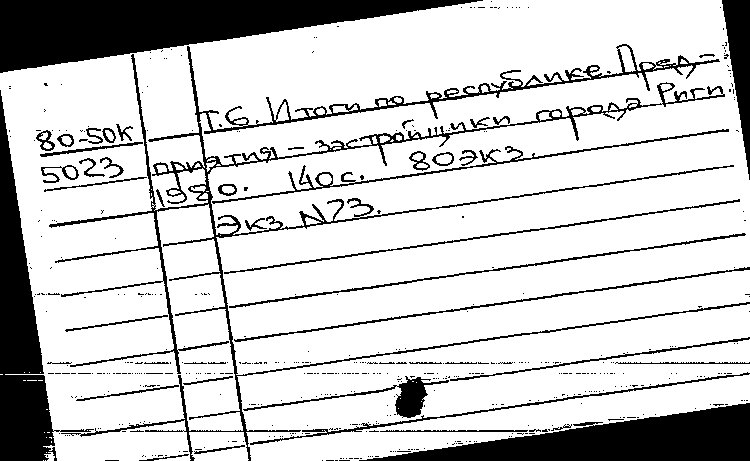 Т.6. Итоги по республике. Пред-
80-50К приятия - застройщики города Риги.
5023 1980. 140с. 80экз.
Экз. N73.